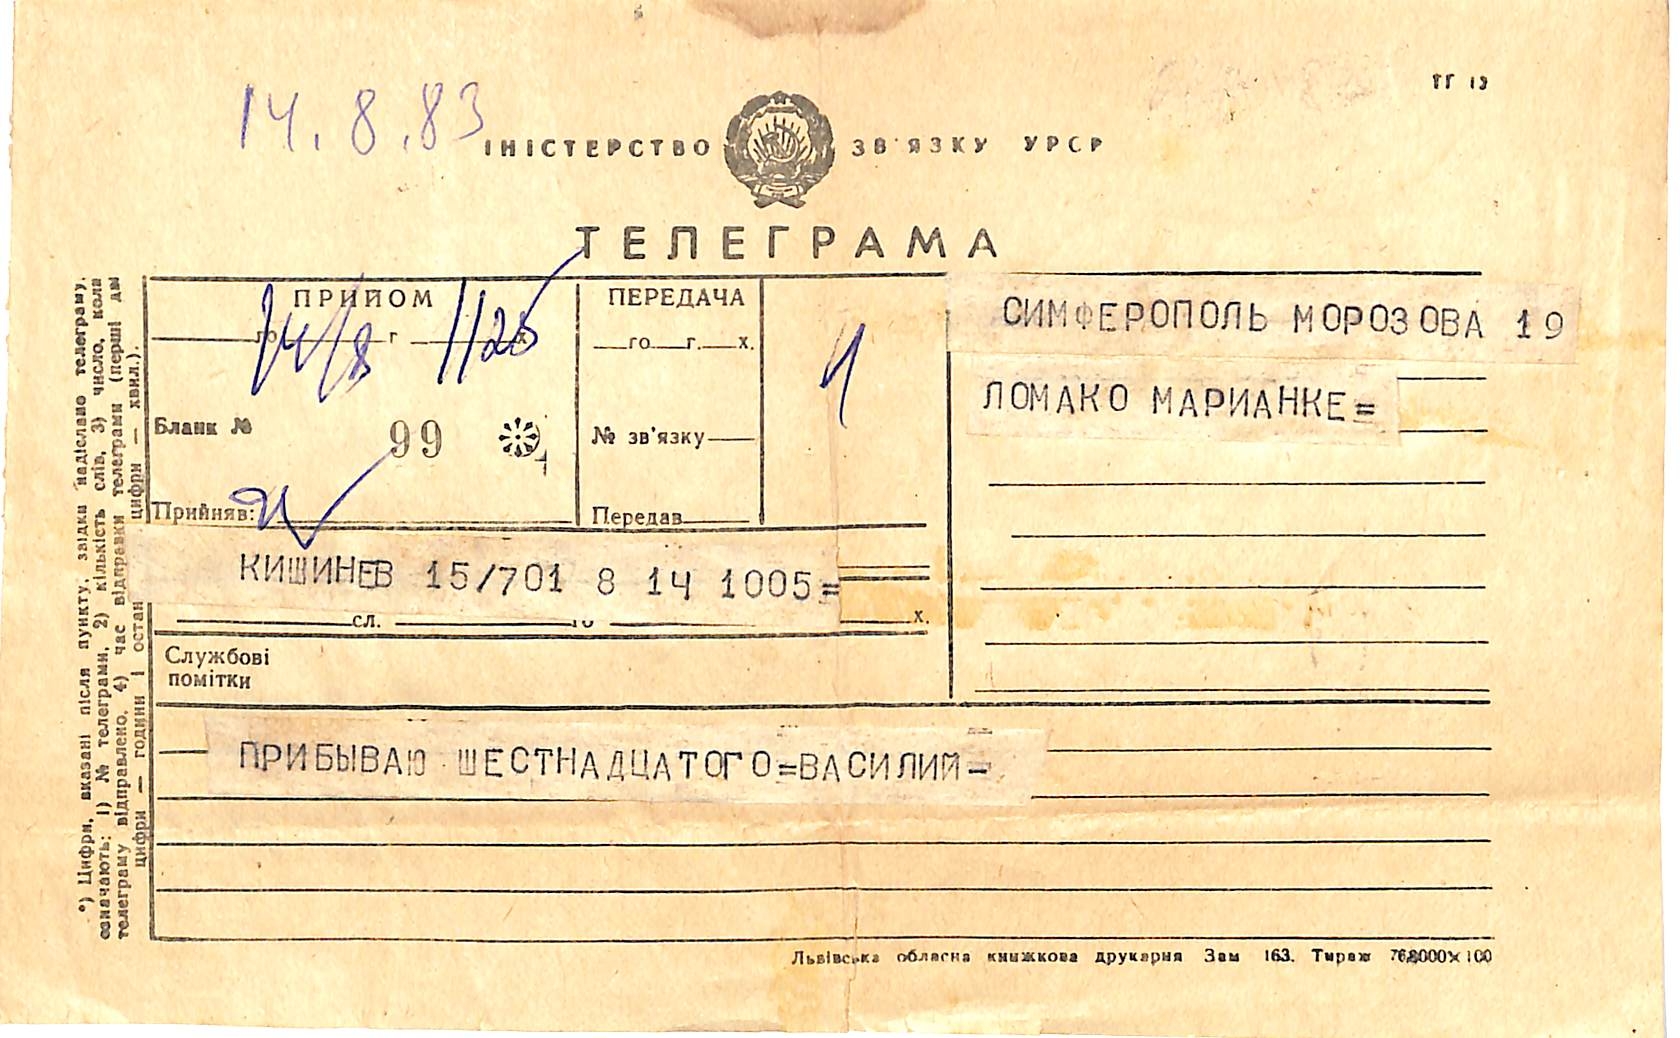 ТГ 13
14.8.83
ІНІСТЕРСТВО ЗВ'ЯЗКУ УРСР
ТЕЛЕГРАМА
ПРИЙОМ
го г х
14/8 1125
Бланк № 99
Прийняв:
ПЕРЕДАЧА
го г. х.
№ зв'язку
Передав
1
СИМФЕРОПОЛЬ МОРОЗОВА 19
ЛОМАКО МАРИАНКЕ=
КИШИНЕВ 15/701 8 14 1005=
сл. го х.
Службові
помітки
ПРИБЫВАЮ ШЕСТНАДЦАТОГО=ВАСИЛИЙ-
*) Цифри, вказані після пункту, звідки надіслано телеграму,
означають: 1) № телеграми, 2) кількість слів, 3) число, коли
телеграму відправлено, 4) час відправки телеграми (перші дві
цифри — години і остан цифри — хвил.).
Львівська обласна книжкова друкарня Зам 163. Тираж 768000×100